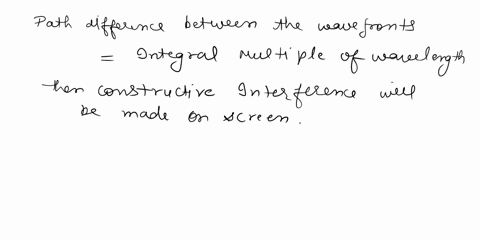 Path difference between the wavefronts
= Integral Multiple of wavelength
then constructive Interference will
be made on screen.